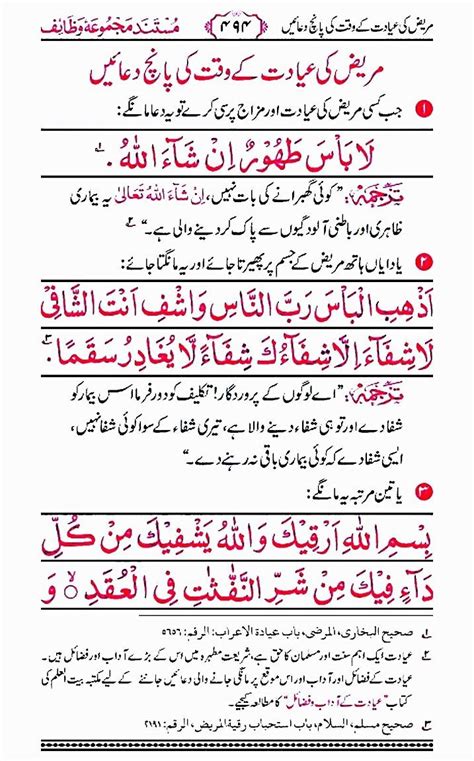 مریض کی عیادت کے وقت کی پانچ دعائیں ۴۹۴ مُستند مجموعۂ وظائف
مریض کی عیادت کے وقت کی پانچ دعائیں
۱ جب کسی مریض کی عیادت اور مزاج پرسی کرے تو یہ دعا مانگے:
لَا بَأْسَ طَهُوْرٌ اِنْ شَآءَ اللهُ . ۱ؔ
تَرجَمہ: ”کوئی گھبرانے کی بات نہیں، اِنْ شَاءَ اللهُ تَعَالیٰ یہ بیماری
ظاہری اور باطنی آلودگیوں سے پاک کر دینے والی ہے۔“ ۲ؔ
۲ یا دایاں ہاتھ مریض کے جسم پر پھیرتا جائے اور یہ مانگتا جائے:
اَذْهِبِ الْبَاْسَ رَبَّ النَّاسِ وَاشْفِ اَنْتَ الشَّافِیْ
لَا شِفَآءَ اِلَّا شِفَآءُكَ شِفَآءً لَّا يُغَادِرُ سَقَمًا . ۳ؔ
تَرجَمہ: ”اے لوگوں کے پروردگار! تکلیف کو دور فرما اس بیمار کو
شفا دے اور تو ہی شفا دینے والا ہے، تیری شفاء کے سوا کوئی شفا نہیں،
ایسی شفا دے کہ کوئی بیماری باقی نہ رہنے دے۔“
۳ یا تین مرتبہ یہ مانگے:
بِسْمِ اللهِ اَرْقِيْكَ وَاللهُ يَشْفِيْكَ مِنْ كُلِّ
دَآءٍ فِيْكَ مِنْ شَرِّ النَّفّٰثٰتِ فِی الْعُقَدِ ۙ وَ
۱ؔ صحیح البخاری، المرضی، باب عیادۃ الاعراب: الرقم: ۵۶۵۶
۲ؔ عیادت ایک اہم سنت اور مسلمان کا حق ہے، شریعت مطہرہ میں اس کے بڑے آداب اور فضائل ہیں۔
عیادت کے آداب اور فضائل اور اس موقع پر مانگی جانے والی دعائیں جاننے کے لیے مکتبہ بیت العلم کی
کتاب ”عیادت کے آداب و فضائل“ کا مطالعہ کیجیے۔
۳ؔ صحیح مسلم، السلام، باب استحباب رقیۃ المریض، الرقم: ۲۱۹۱